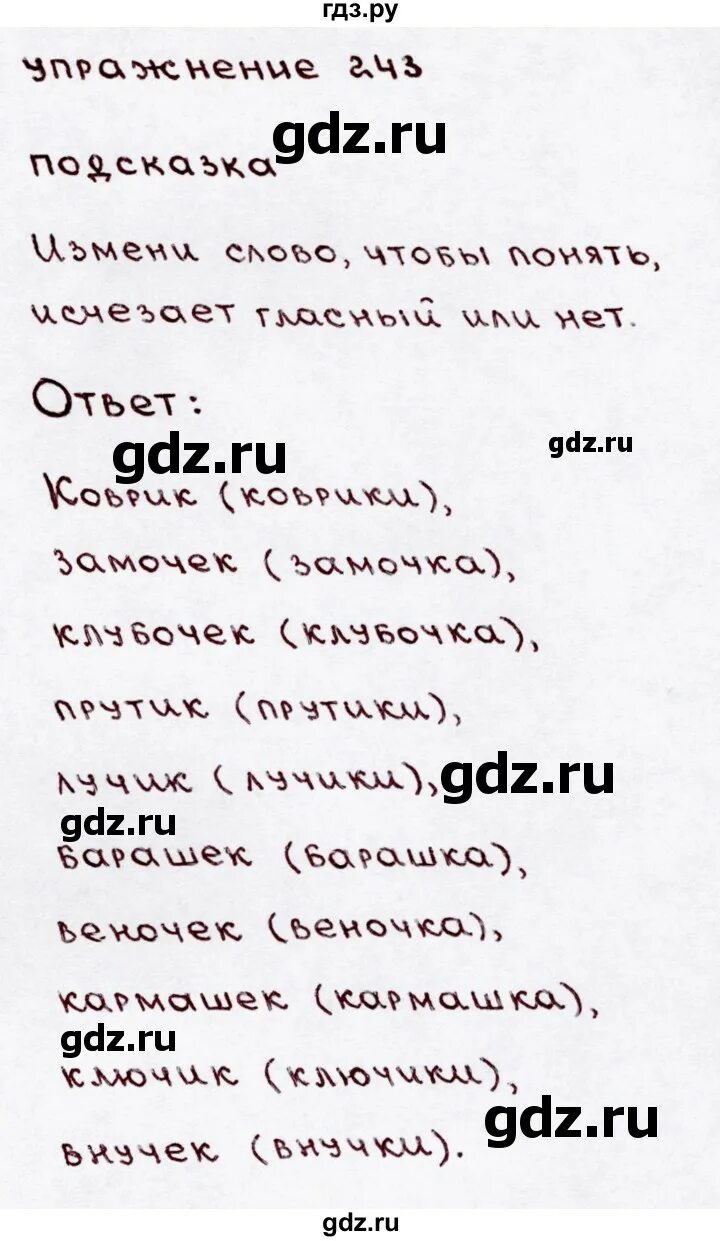 гдз.ру
упражнение 243
gdz.ru
подсказка
Измени слово, чтобы понять,
исчезает гласный или нет.
Ответ:
gdz.ru
gdz.ru
Коврик (коврики),
замочек (замочка),
клубочек (клубочка),
прутик (прутики),
лучик (лучики),
gdz.ru
gdz.ru
барашек (барашка),
веночек (веночка),
кармашек (кармашка),
gdz.ru
ключик (ключики),
gdz.ru
внучек (внучки).
gdz.ru